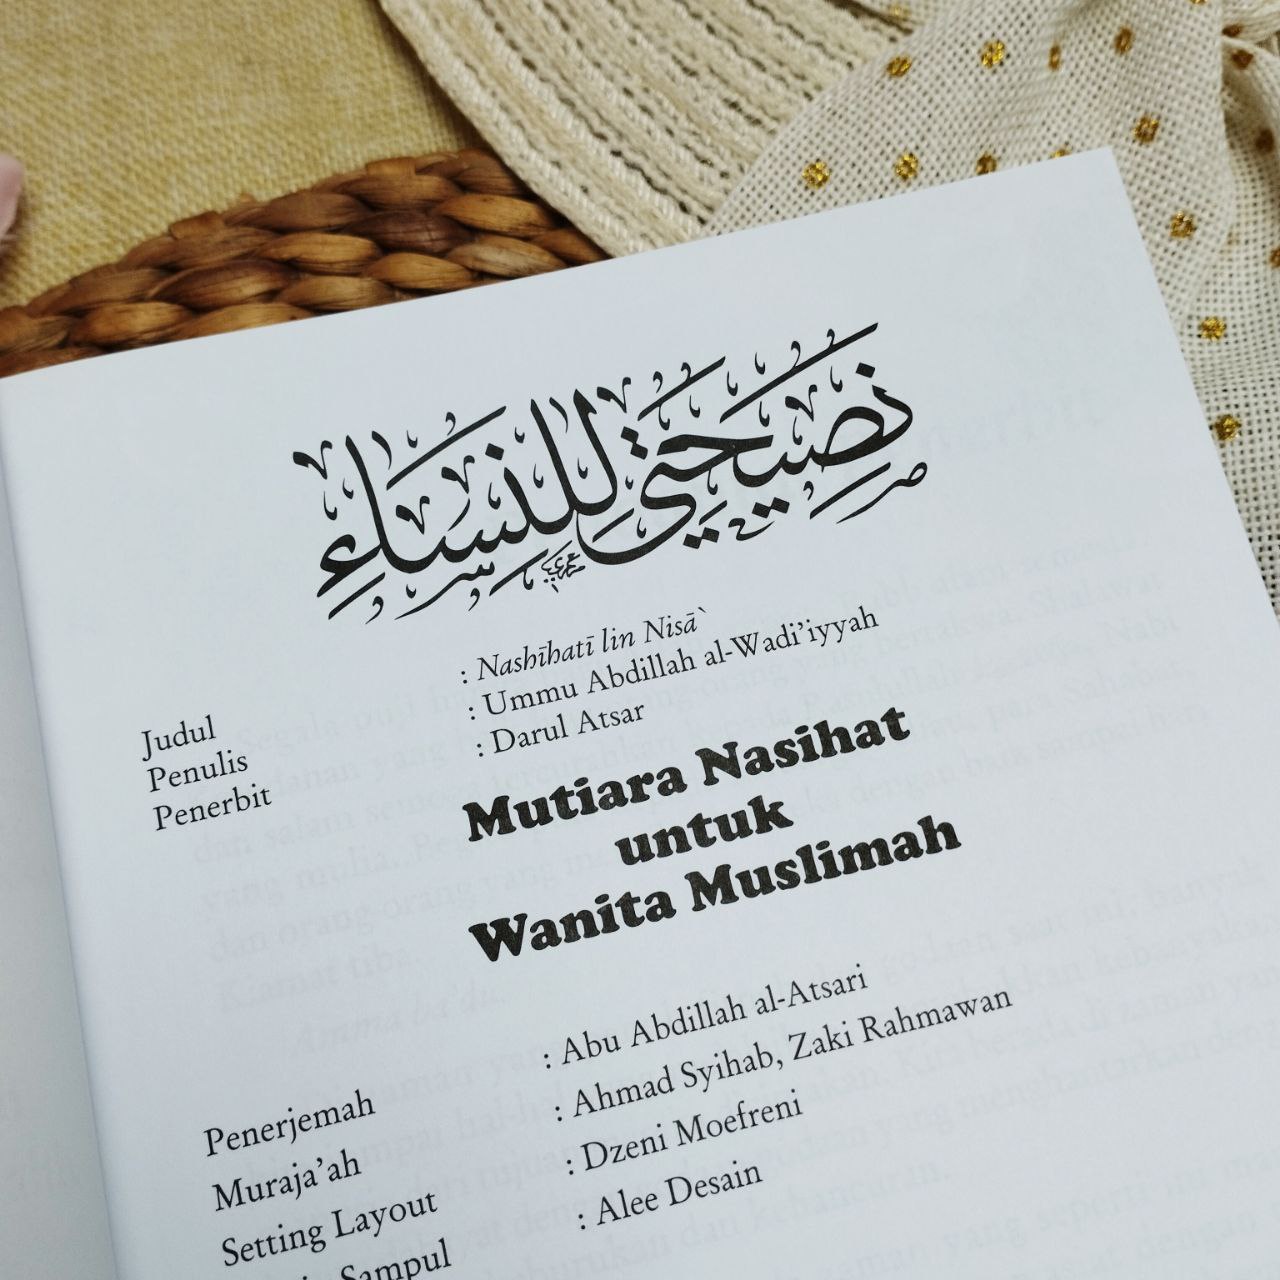 نَصِيحَتِي لِلنِّسَاءِ
Judul : Nashīhatī lin Nisā`
Penulis : Ummu Abdillah al-Wadi’iyyah
Penerbit : Darul Atsar
Mutiara Nasihat
untuk
Wanita Muslimah
Penerjemah : Abu Abdillah al-Atsari
Muraja’ah : Ahmad Syihab, Zaki Rahmawan
Setting Layout : Dzeni Moefreni
Sampul : Alee Desain